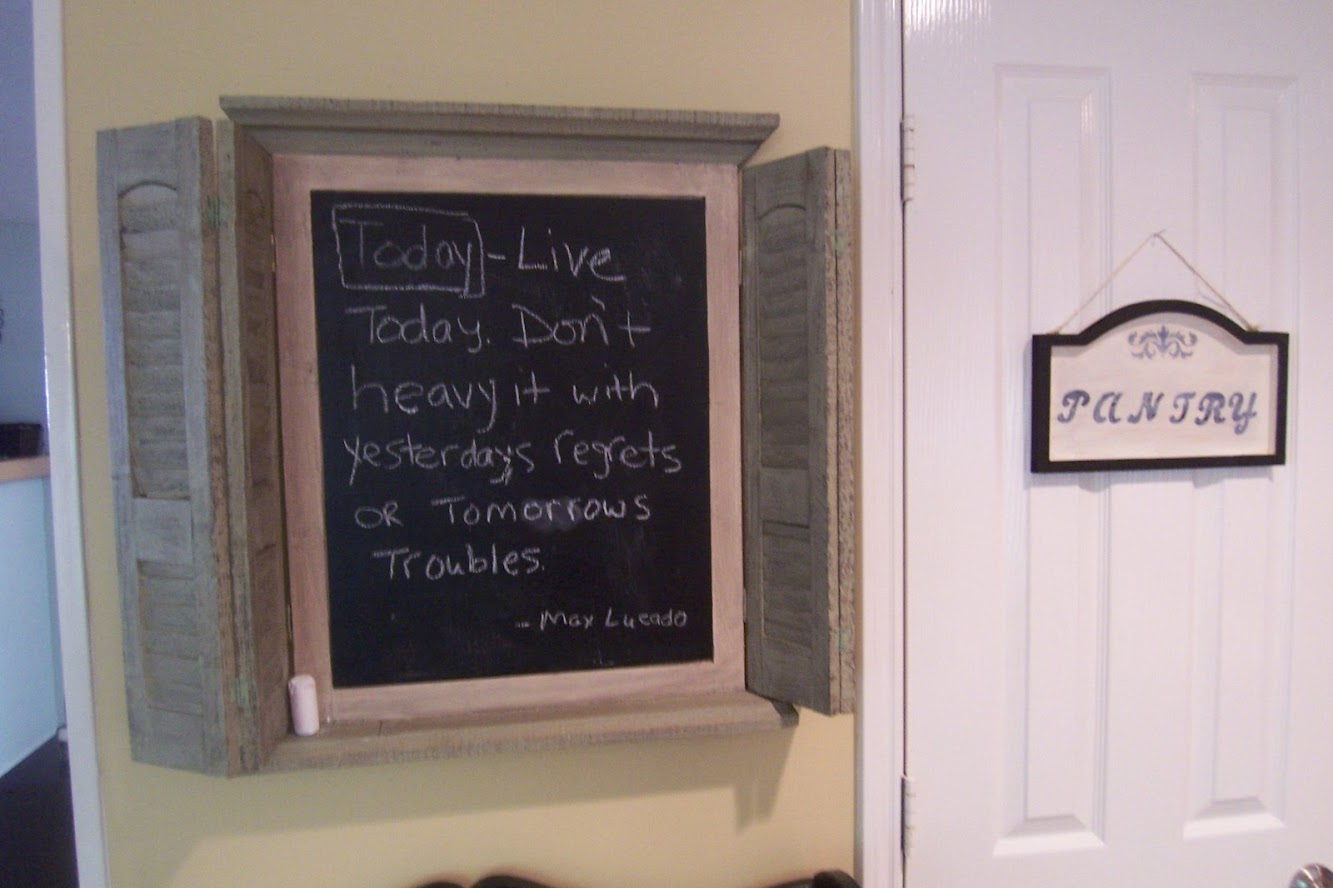 Today - Live
Today. Don't
heavy it with
yesterdays regrets
OR Tomorrows
Troubles.
- Max Lucado
PANTRY